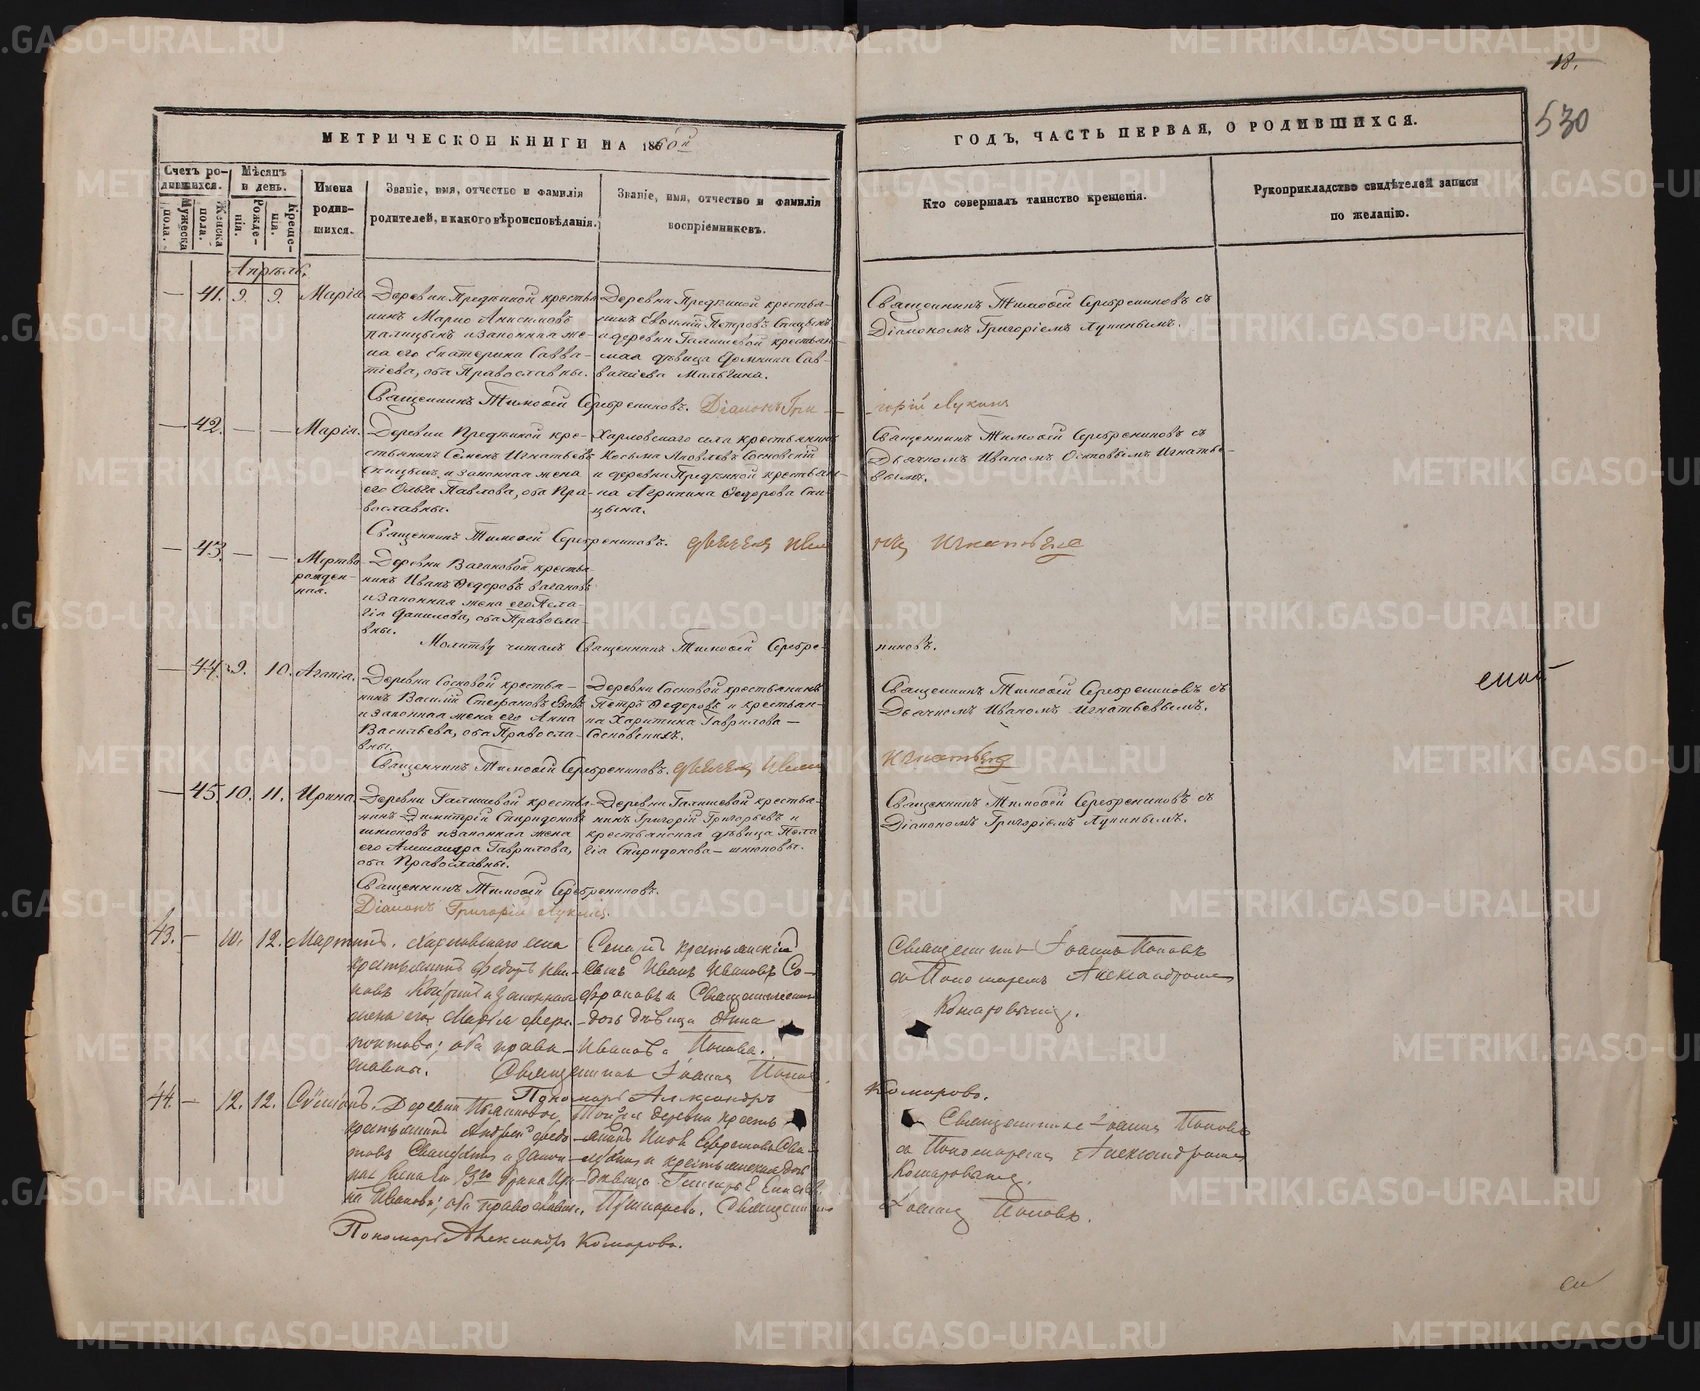 18.
530
МЕТРИЧЕСКОЙ КНИГИ НА 1860й
ГОДЪ, ЧАСТЬ ПЕРВАЯ, О РОДИВШИХСЯ.
Счетъ ро-
дившихся.
Мужеска пола.
Женска пола.
Мѣсяцъ
и день.
Рожде-
нія.
Креще-
нія.
Имена
родив-
шихся.
Званіе, имя, отчество и фамилія
родителей, и какого вѣроисповѣданія.
Званіе, имя, отчество и фамилія
воспріемниковъ.
Кто совершалъ таинство крещенія.
Рукоприкладство свидѣтелей записи
по желанію.
Апрѣль.
— 41. 9. 9. Марія
Деревни Предтиной крестья
нинъ Марко Анисимовъ
палицынъ и законная же-
на его Екатерина Савва-
тіева, оба Православны.
Деревни Предтиной крестья-
нинъ Евѳимій Петровъ Спицынъ
и деревни Галишевой крестьян-
ская дѣвица Домнина Сав-
ватіева Мальгина.
Священникъ Тимоѳей Серебрениковъ съ
Діакономъ Григоріемъ Лукинымъ.
Священникъ Тимоѳей Серебрениковъ. Діаконъ Гри-
горій Лукинъ
— 42. — — Марія.
Деревни Предтиной кре-
стьянинъ Семенъ Игнатьевъ
спицынъ и законная жена
его Ольга Павлова, оба Пра-
вославны.
Харловскаго села крестьянинъ
Косьма Яковлевъ Сосновскій
и деревни Предтиной крестьян-
на Агрипина Ѳедорова Спи-
цына.
Священникъ Тимоѳей Серебрениковъ съ
Дьячкомъ Иваномъ Игнатье-
вымъ.
Священникъ Тимоѳей Серебрениковъ. дьячекъ Иван
Игнатьевъ
— 43. — — Мертво
рожден-
ная.
Деревни Вагановой крестья
нинъ Иванъ Ѳедоровъ Вагановъ
и законная жена его Пела-
гія Данилова, оба Правосла-
вны.
Молитву читалъ Священникъ Тимоѳей Серебре-
никовъ.
— 44. 9. 10. Агапія.
Деревни Сосновой крестья-
нинъ Василій Стефановъ
и законная жена его Анна
Васильева, оба Правосла-
вны.
Деревни Сосновой крестьянинъ
Петръ Ѳедоровъ и крестьян-
на Харитина Гаврилова —
Сосновскихъ.
Священникъ Тимоѳей Серебрениковъ съ
Дьячкомъ Иваномъ Игнатьевымъ.
Священникъ Тимоѳей Серебрениковъ. дьячекъ Иван
Игнатьевъ
— 45. 10. 11. Ирина.
Деревни Галишевой крестья-
нинъ Димитрій Спиридоновъ
шнюковъ и законная жена
его Александра Гаврилова,
оба Православны.
Деревни Галишевой крестья-
нинъ Григорій Григорьевъ и
крестьянская дѣвица Пела
гія Спиридонова — шнюковы.
Священникъ Тимоѳей Серебрениковъ съ
Діакономъ Григоріемъ Лукинымъ.
Священникъ Тимоѳей Серебрениковъ.
Діаконъ Григорій Лукинъ.
43. — 10. 12. Мартинъ.
Харловскаго села
крестьянинъ Ѳедотъ Ива-
новъ и законная
жена его Марія
оба право-
славны.
крестьянскій
сынъ Иванъ Ивановъ Со-
фроновъ и Священническая
дочь дѣвица Анна
Иванова Попова.
Священникъ Іоаннъ Поповъ
съ Пономаремъ Александромъ
Комаровымъ.
Священникъ Іоаннъ Поповъ
Пономарь Александръ
Комаровъ.
44. — 12. 12. Сѵмеонъ.
Деревни
крестьянинъ Андрей Ѳедо-
товъ и закон-
ная жена его Ири-
на Иванова; оба православны.
Той же деревни кресть-
янинъ Іаковъ
и крестьянская дочь
дѣвица
Священникъ Іоаннъ Поповъ
съ Пономаремъ Александромъ
Комаровымъ.
Священникъ
Іоаннъ Поповъ.
Пономарь Александръ Комаровъ.